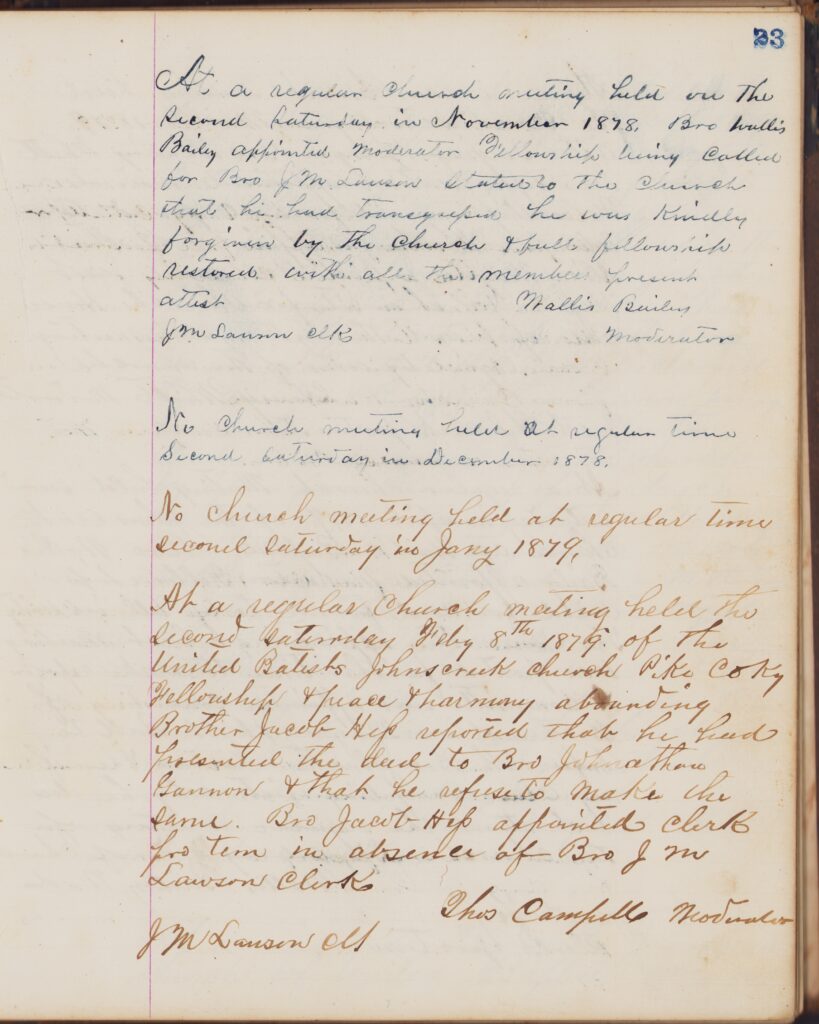 23
At a regular church meeting held on the
second Saturday in November 1878, Bro Wallis
Bailey appointed Moderator Fellowship being Called
for Bro J M Lawson Stated to the Church
that he had transgressed he was Kindly
forgiven by the church & full fellowship
restored with all the members present
attest Wallis Bailey
J M Lawson Clk Moderator
No church meeting held at regular time
Second Saturday in December 1878,
No church meeting held at regular time
second Saturday in Jany 1879,
At a regular church meeting held the
second saturday Feby 8th 1879. of the
United Batists Johnscreek church Pike Co Ky
Fellowship & peace & harmony abounding
Brother Jacob Hess reported that he had
presented the deed to Bro Johnathan
Gannon & that he refuse to make the
same. Bro Jacob Hess appointed clerk
pro tem in absence of Bro J M
Lawson Clerk
Thos Campell Moderator
J M Lawson Clk